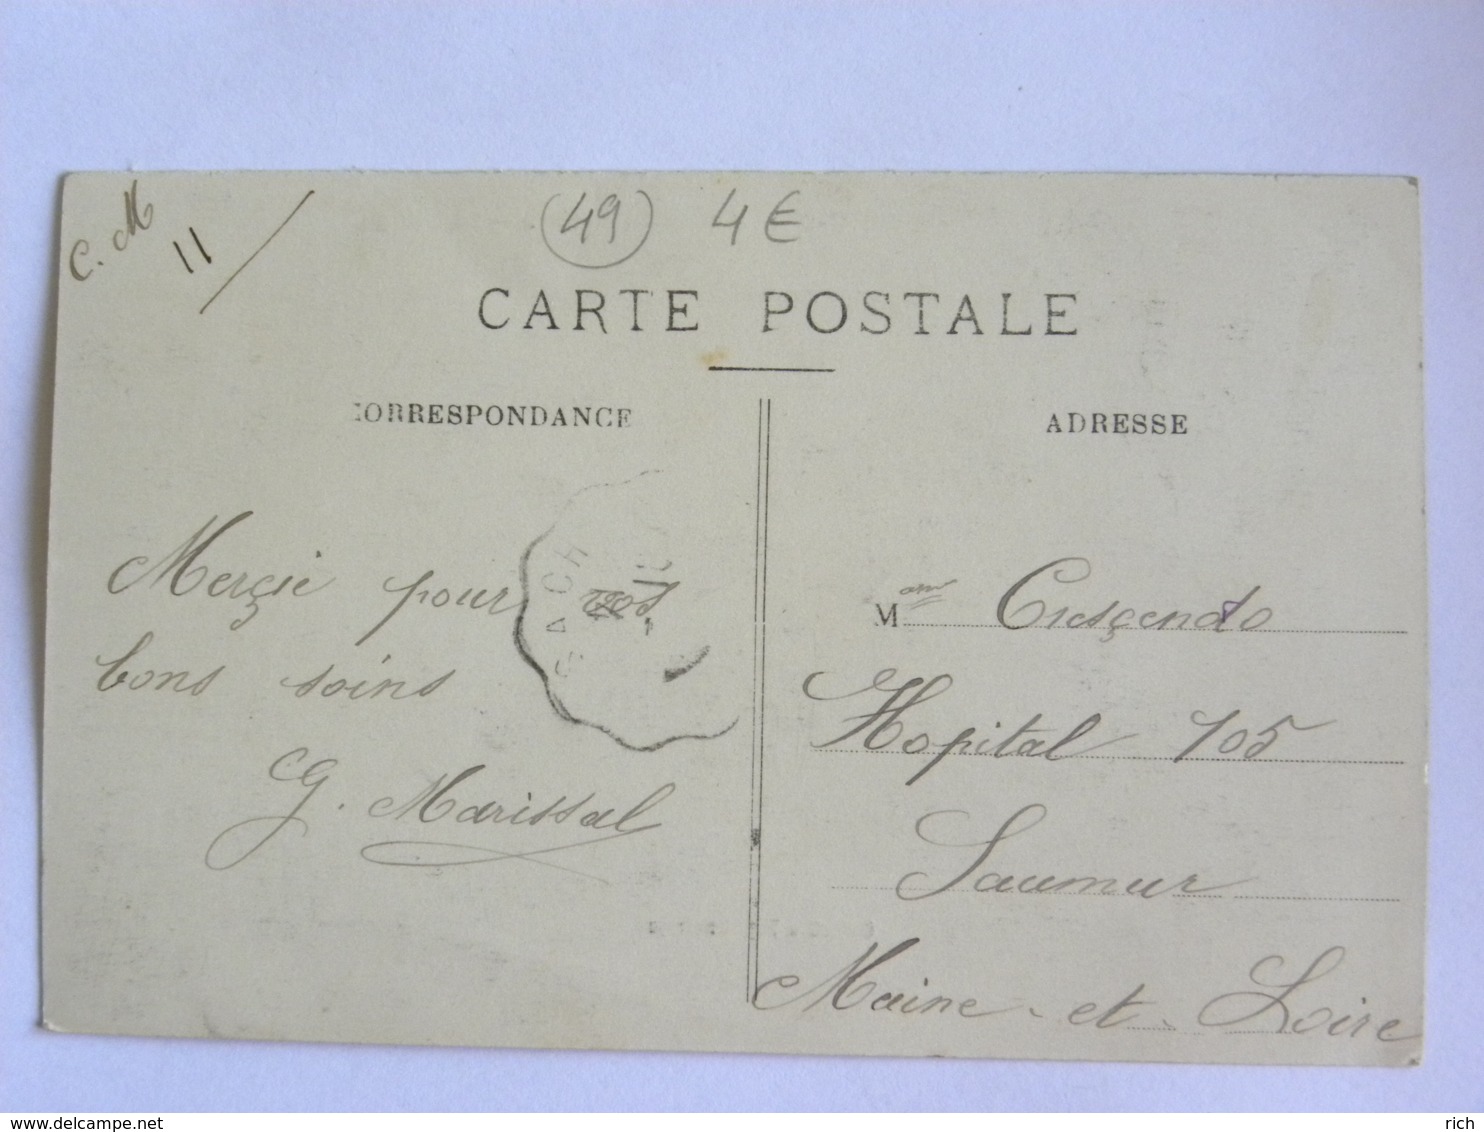 C. M
11
(49) 4€
CARTE POSTALE
CORRESPONDANCE
ADRESSE
Merçie pour vos
bons soins
G. Marissal
GACH
M ame Cresçendo
Hopital 105
Saumur
Maine-et-Loire
www.delcampe.net
rich